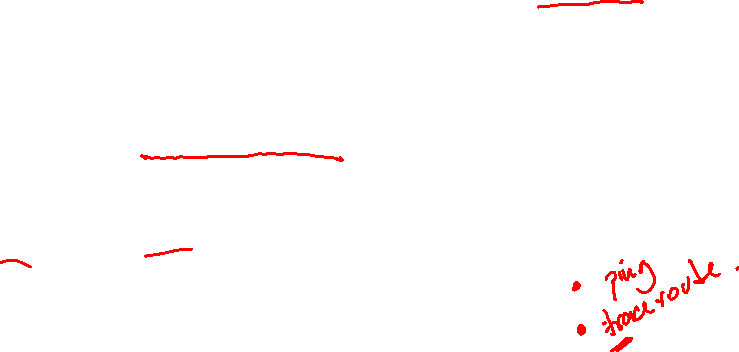 • ping
• traceroute.